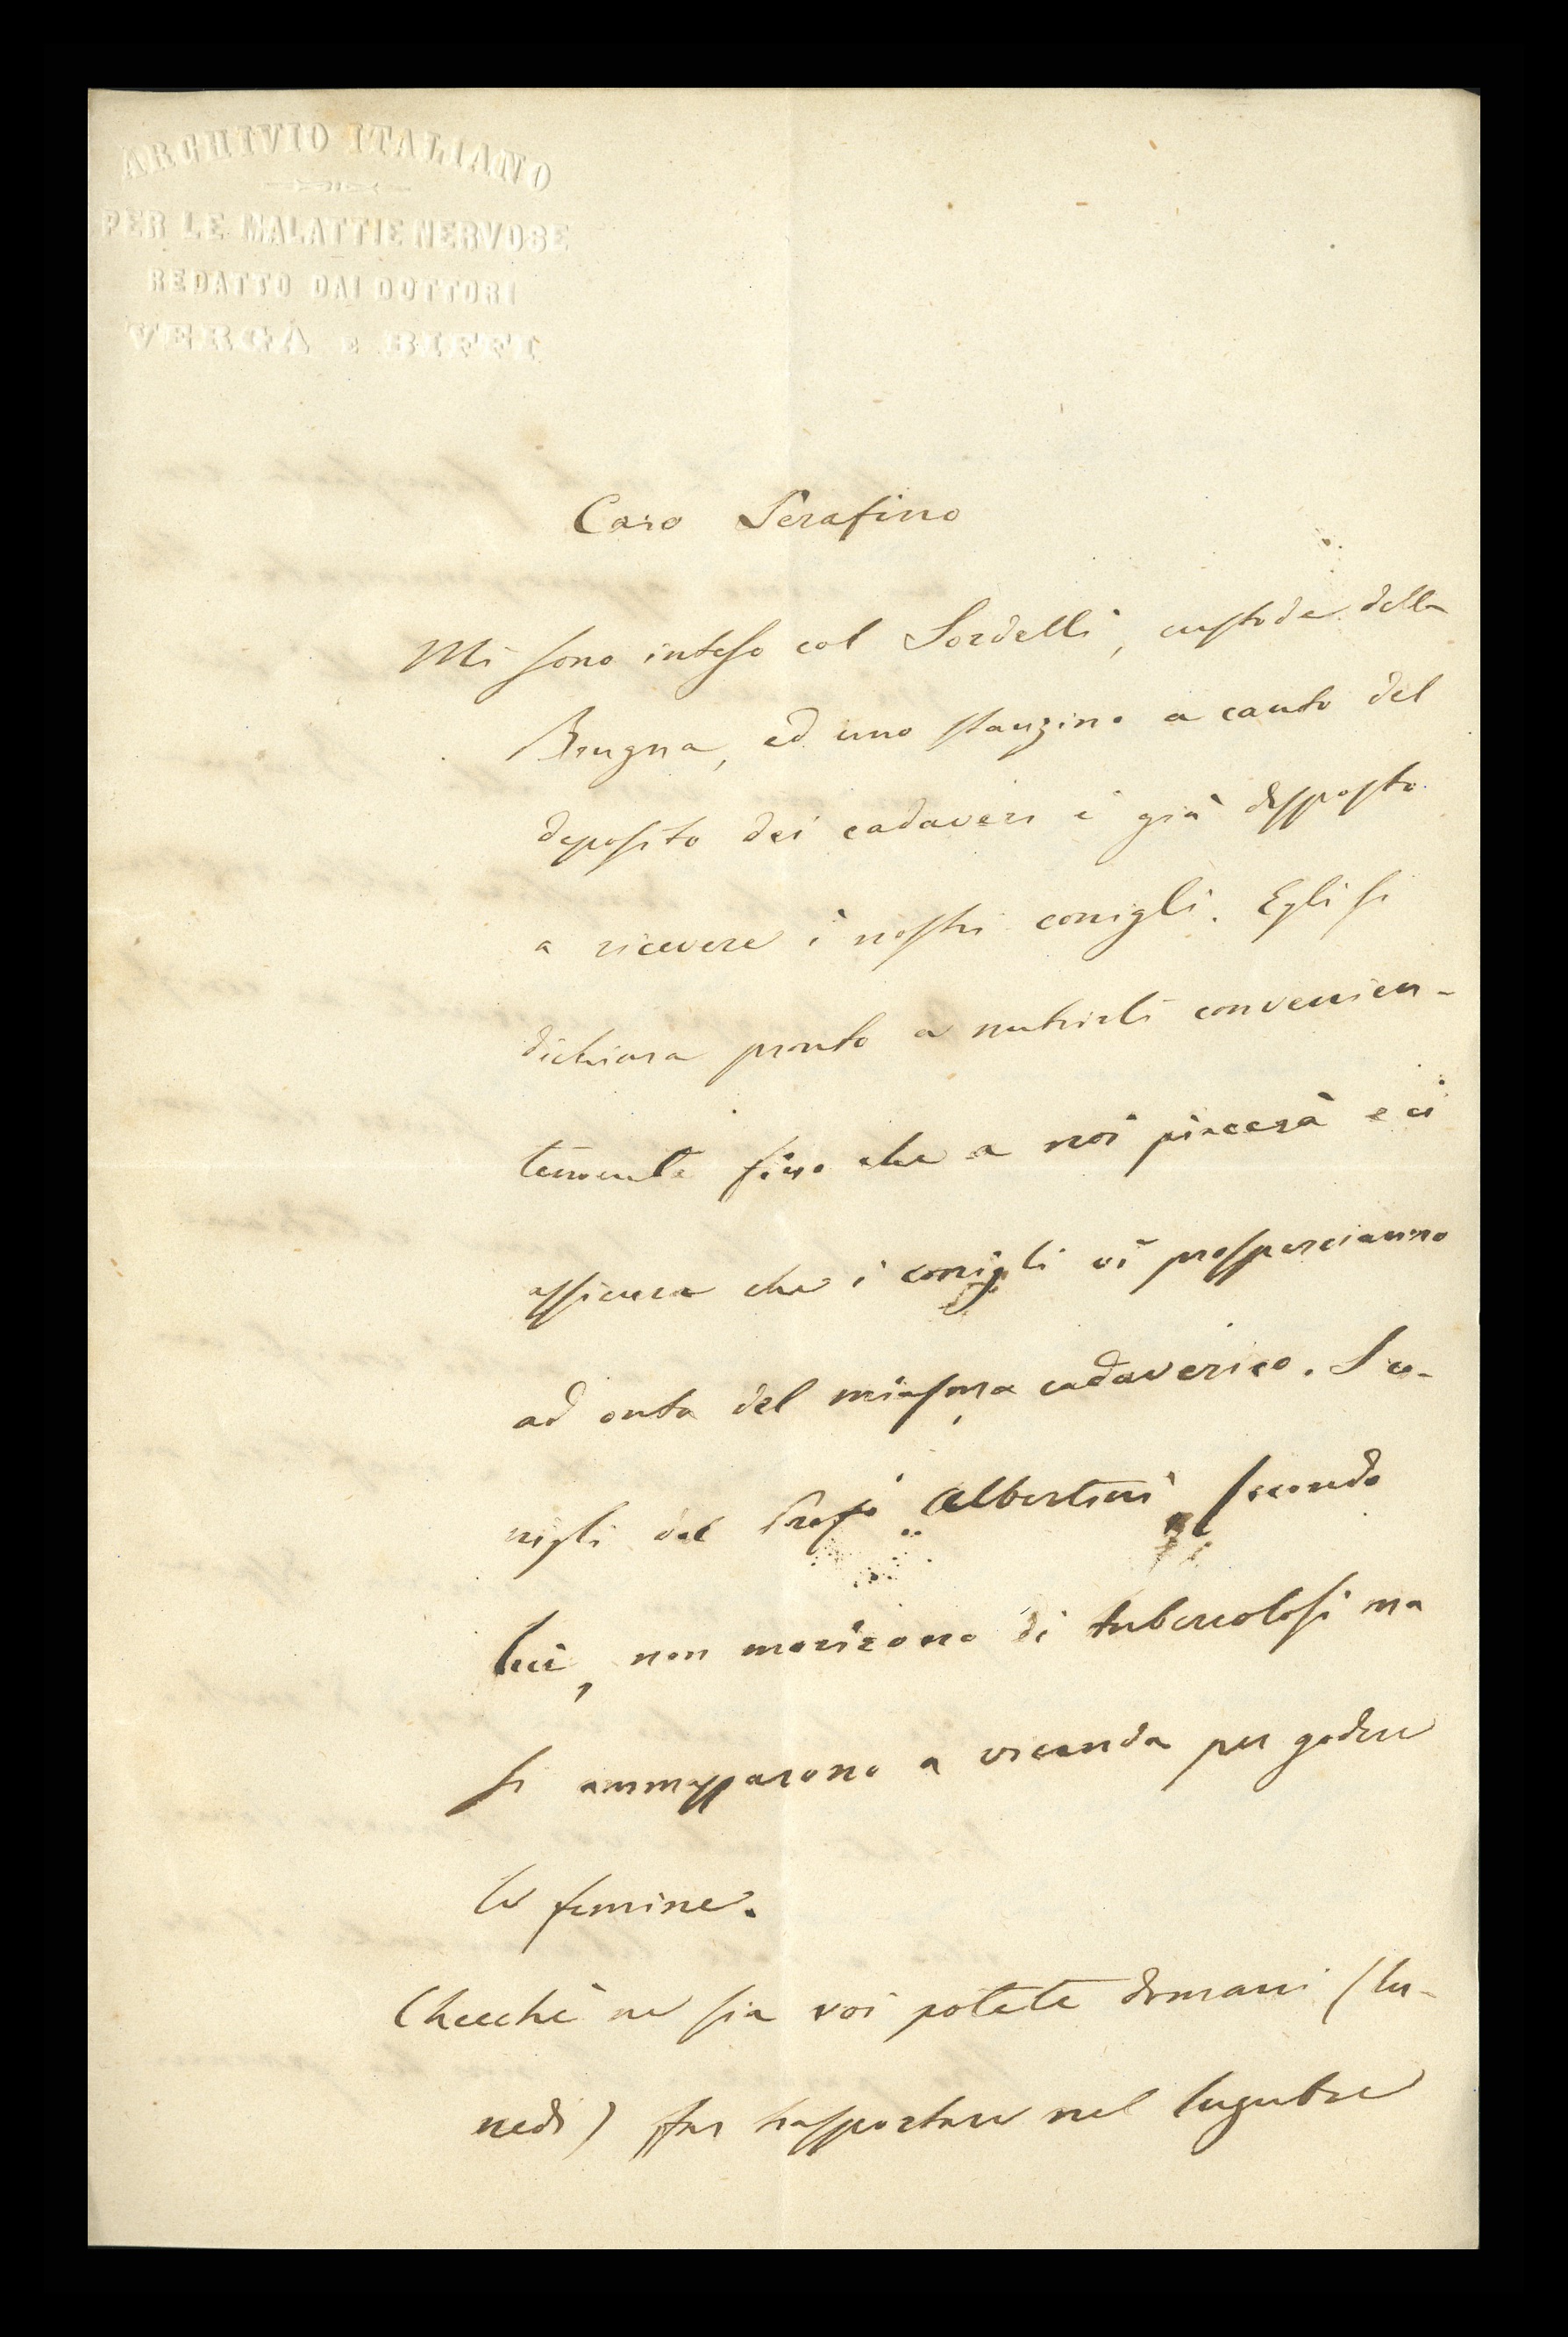 ARCHIVIO ITALIANO
PER LE MALATTIE NERVOSE
REDATTO DAI DOTTORI
VERGA E BIFFI
Caro Serafino
Mi sono inteso col Sordelli, custode della
Brugna, ed uno stanzino a canto del
deposito dei cadaveri è già disposto
a ricevere i nostri conigli. Egli si
dichiara pronto a nutrirli convenien-
temente fino che a noi piacerà e ci
assicura che i conigli vi prospereranno
ad onta del miasma cadaverico. I co-
nigli del Prof. Albertini, secondo
lui, non morirono di tubercolosi ma
si ammazzarono a vicenda per godere
le femine.
Checchè ne sia voi potete domani (lu-
nedì) far trasportare nel lugubre